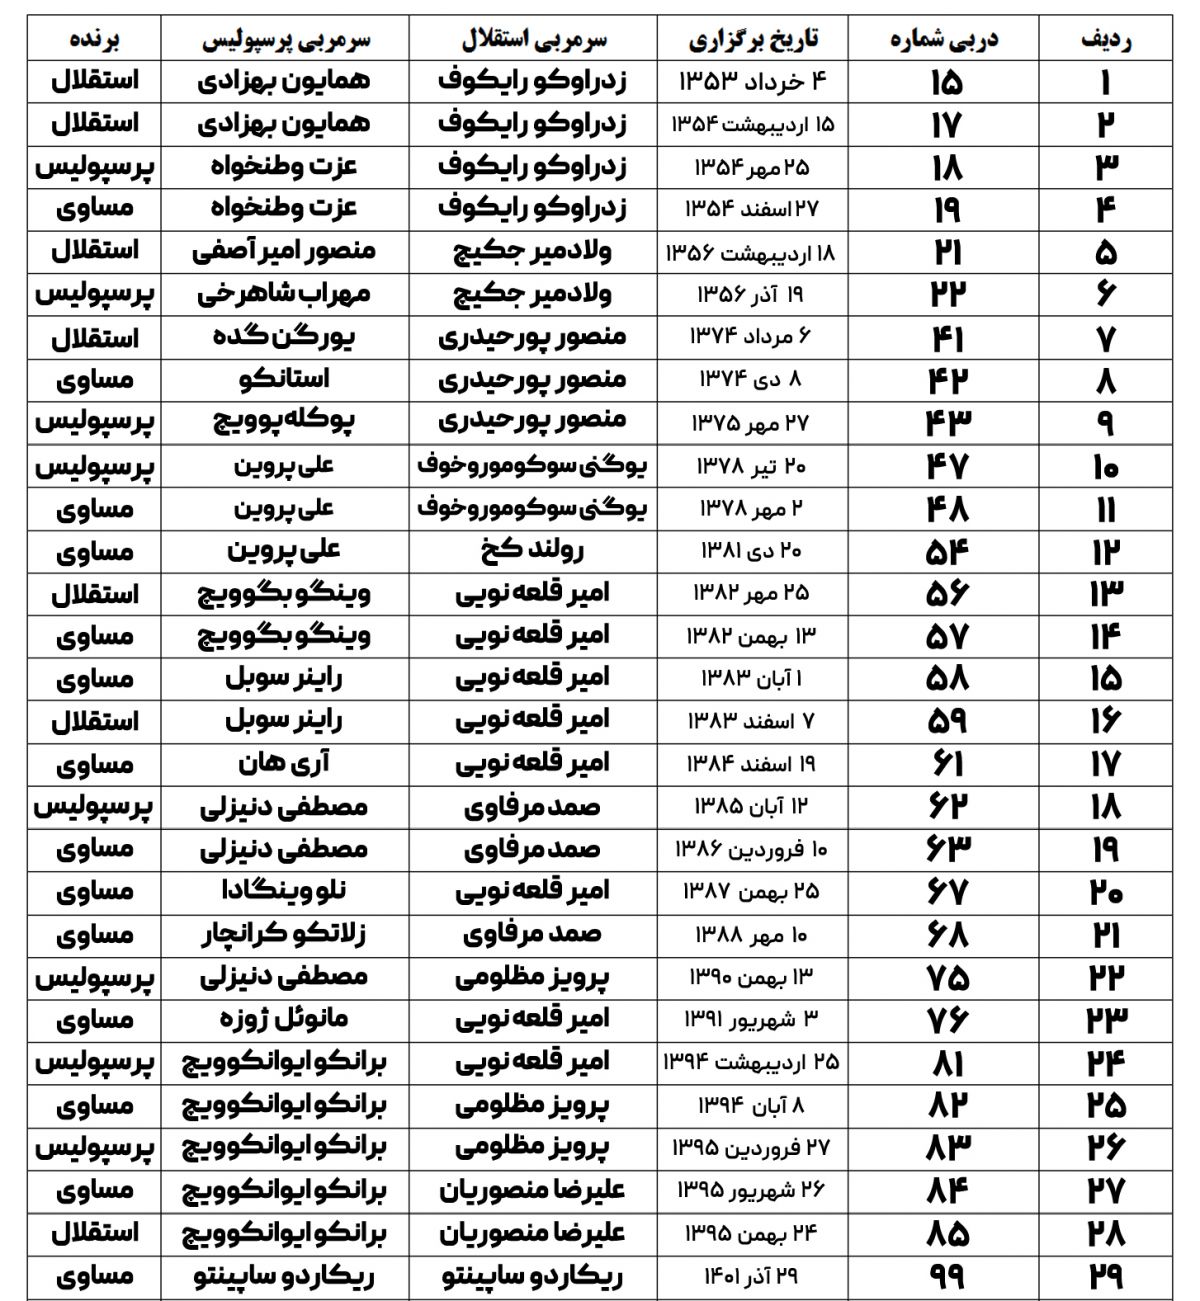 ردیف دربی شماره تاریخ برگزاری سرمربی استقلال سرمربی پرسپولیس برنده
۱ ۱۵ ۴ خرداد ۱۳۵۳ زدراوکو رایکوف همایون بهزادی استقلال
۲ ۱۷ ۱۵ اردیبهشت ۱۳۵۴ زدراوکو رایکوف همایون بهزادی استقلال
۳ ۱۸ ۲۵ مهر ۱۳۵۴ زدراوکو رایکوف عزت وطنخواه پرسپولیس
۴ ۱۹ ۲۷ اسفند ۱۳۵۴ زدراوکو رایکوف عزت وطنخواه مساوی
۵ ۲۱ ۱۸ اردیبهشت ۱۳۵۶ ولادمیر جکیچ منصور امیرآصفی استقلال
۶ ۲۲ ۱۹ آذر ۱۳۵۶ ولادمیر جکیچ مهراب شاهرخی پرسپولیس
۷ ۴۱ ۶ مرداد ۱۳۷۴ منصور پورحیدری یورگن گده استقلال
۸ ۴۲ ۸ دی ۱۳۷۴ منصور پورحیدری استانکو مساوی
۹ ۴۳ ۲۷ مهر ۱۳۷۵ منصور پورحیدری پوکله‌پوویچ پرسپولیس
۱۰ ۴۷ ۲۰ تیر ۱۳۷۸ یوگنی سوکوموروخوف علی پروین پرسپولیس
۱۱ ۴۸ ۲ مهر ۱۳۷۸ یوگنی سوکوموروخوف علی پروین مساوی
۱۲ ۵۴ ۲۰ دی ۱۳۸۱ رولند کخ علی پروین مساوی
۱۳ ۵۶ ۲۵ مهر ۱۳۸۲ امیر قلعه نویی وینگو بگوویچ استقلال
۱۴ ۵۷ ۱۳ بهمن ۱۳۸۲ امیر قلعه نویی وینگو بگوویچ مساوی
۱۵ ۵۸ ۱ آبان ۱۳۸۳ امیر قلعه نویی راینر سوبل مساوی
۱۶ ۵۹ ۷ اسفند ۱۳۸۳ امیر قلعه نویی راینر سوبل استقلال
۱۷ ۶۱ ۱۹ اسفند ۱۳۸۴ امیر قلعه نویی آری هان مساوی
۱۸ ۶۲ ۱۲ آبان ۱۳۸۵ صمد مرفاوی مصطفی دنیزلی پرسپولیس
۱۹ ۶۳ ۱۰ فروردین ۱۳۸۶ صمد مرفاوی مصطفی دنیزلی مساوی
۲۰ ۶۷ ۲۵ بهمن ۱۳۸۷ امیر قلعه نویی نلو وینگادا مساوی
۲۱ ۶۸ ۱۰ مهر ۱۳۸۸ صمد مرفاوی زلاتکو کرانچار مساوی
۲۲ ۷۵ ۱۳ بهمن ۱۳۹۰ پرویز مظلومی مصطفی دنیزلی پرسپولیس
۲۳ ۷۶ ۳ شهریور ۱۳۹۱ امیر قلعه نویی مانوئل ژوزه مساوی
۲۴ ۸۱ ۲۵ اردیبهشت ۱۳۹۴ امیر قلعه نویی برانکو ایوانکوویچ پرسپولیس
۲۵ ۸۲ ۸ آبان ۱۳۹۴ پرویز مظلومی برانکو ایوانکوویچ مساوی
۲۶ ۸۳ ۲۷ فروردین ۱۳۹۵ پرویز مظلومی برانکو ایوانکوویچ پرسپولیس
۲۷ ۸۴ ۲۶ شهریور ۱۳۹۵ علیرضا منصوریان برانکو ایوانکوویچ مساوی
۲۸ ۸۵ ۲۴ بهمن ۱۳۹۵ علیرضا منصوریان برانکو ایوانکوویچ استقلال
۲۹ ۹۹ ۲۹ آذر ۱۴۰۱ ریکاردو ساپینتو ریکاردو ساپینتو مساوی